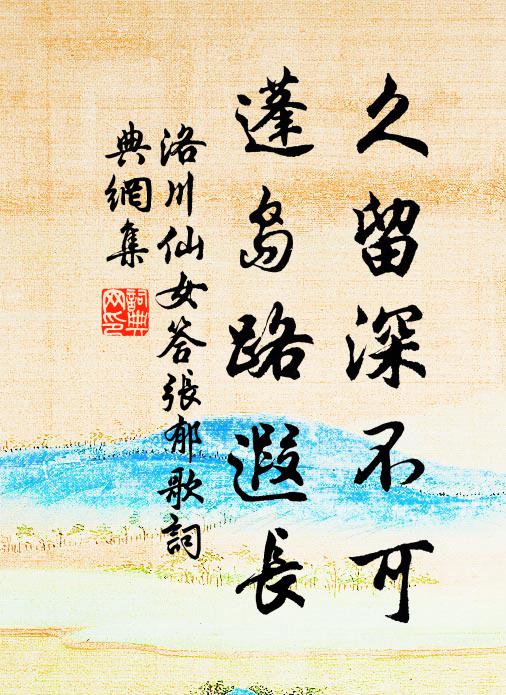 久留深不可
蓬島路遐長
洛川仙女答張郁歌詞
典網集
詞典網印